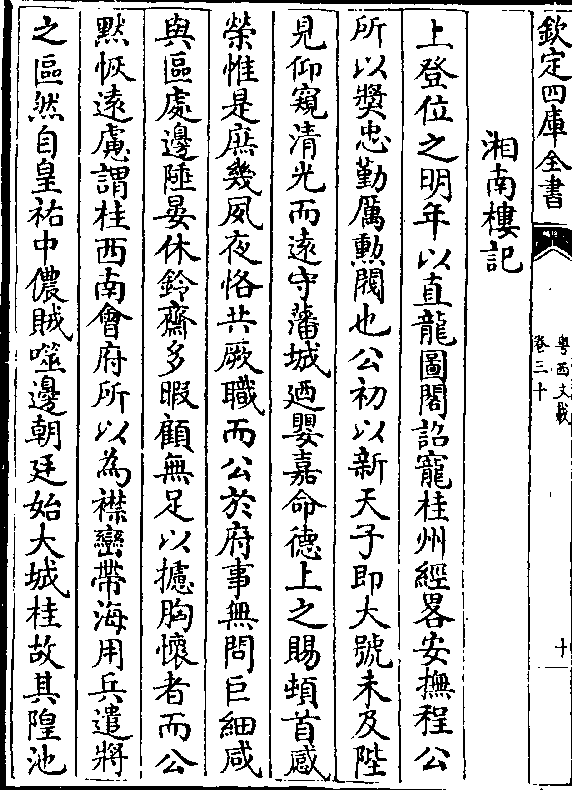 欽定四庫全書
粤西文載
卷三十
十
湘南樓記
上登位之明年以直龍圖閣詔寵桂州經畧安撫程公
所以奬忠勤厲勲閥也公初以新天子即大號未及陛
見仰窺清光而遠守藩城廼嬰嘉命德上之賜頓首感
榮惟是庶幾夙夜恪共厥職而公於府事無問巨細咸
與區處邊陲晏休鈴齋多暇顧無足以攄胸懷者而公
黙恢遠慮謂桂西南㑹府所以為襟巒帶海用兵遣將
之區然自皇祐中儂賊噬邊朝廷始大城桂故其隍池